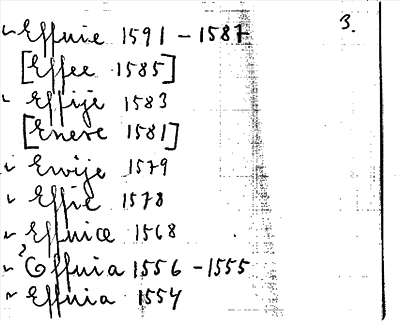 Effnie 1591 - 1587
3.
[Effee 1585]
Effije 1583
[Enese 1581]
Ewije 1579
Effie 1578
Effnice 1568
? Effnia 1556 - 1555
Effnia 1554